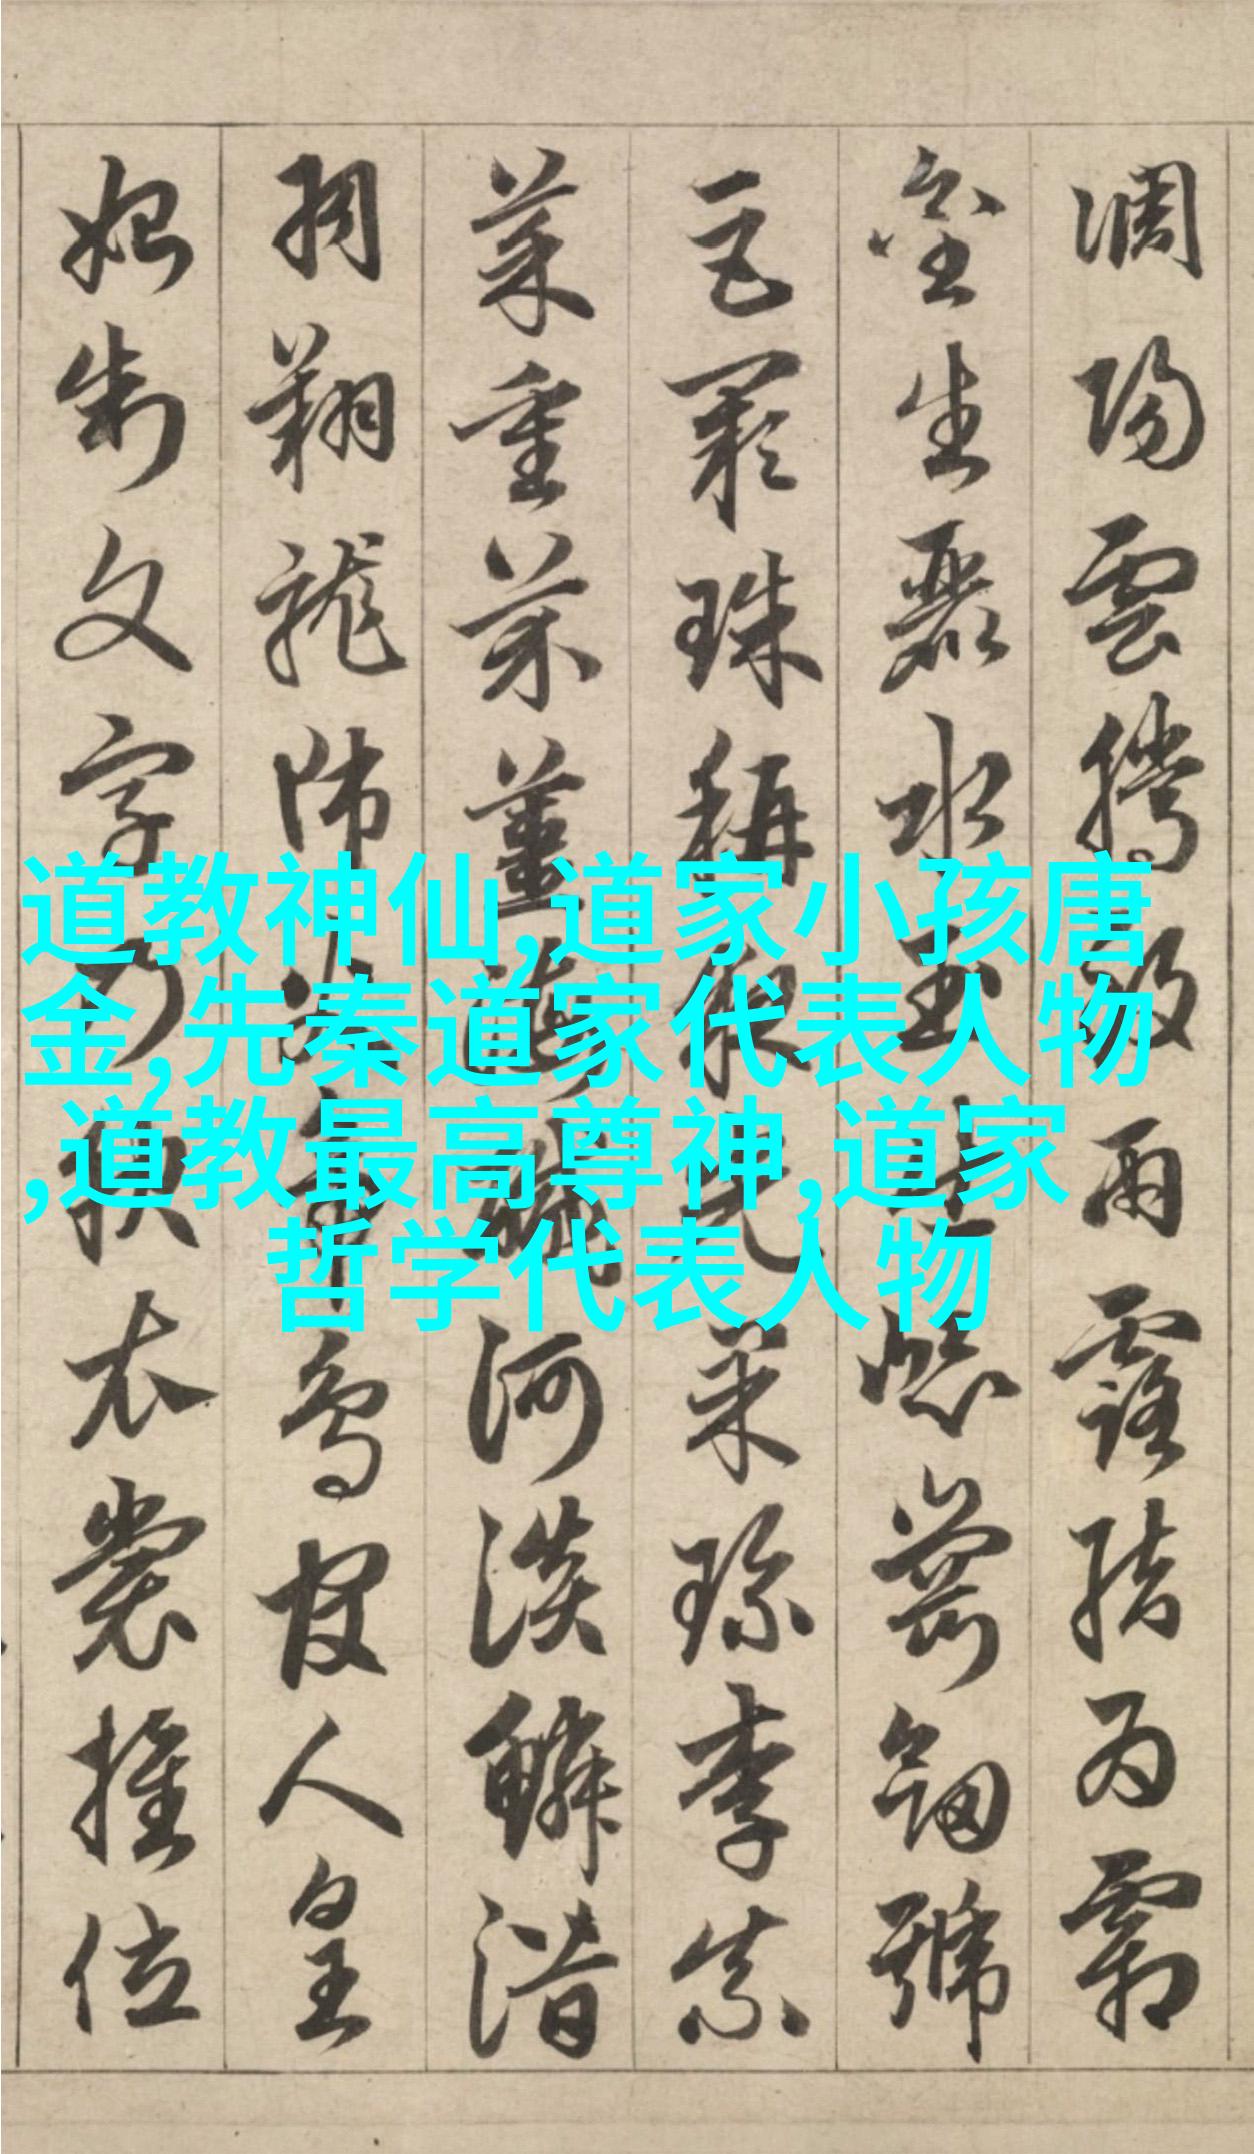 調陽雲騰致雨露結為霜
金生麗水玉出崑崗劍號
巨闕珠稱夜光菓珍李柰
菜重芥薑海鹹河淡鱗潛
羽翔龍師火帝鳥官人皇
始制文字乃服衣裳推位
道教神仙,道家小孩唐
金,先秦道家代表人物
,道教最高尊神,道家
哲学代表人物